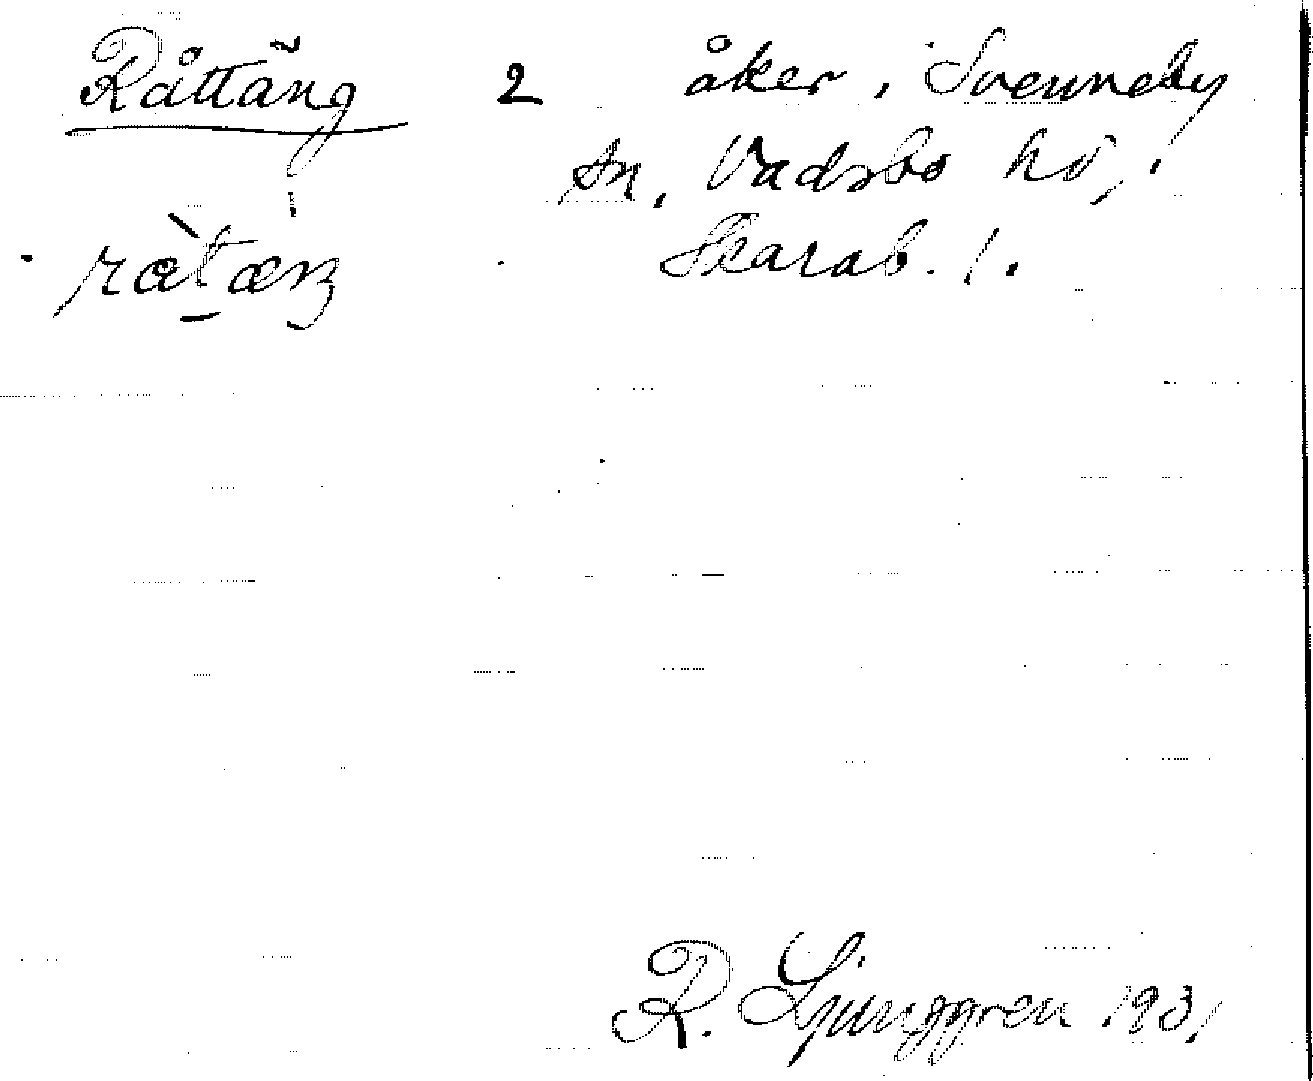 Råttäng 2 åker i Svenneby
sn, Vadsbo hd,
rætæŋ Skarab. l.
R. Ljunggren 1931